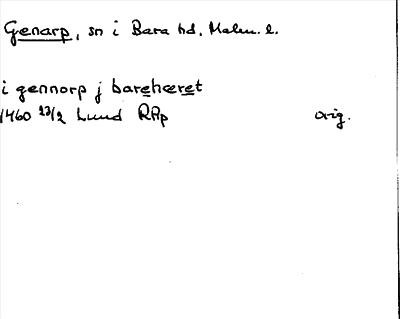 Genarp, sn i Bara hd. Malm. l.
i gennorp j barehæret
1460 23/2 Lund RAp orig.